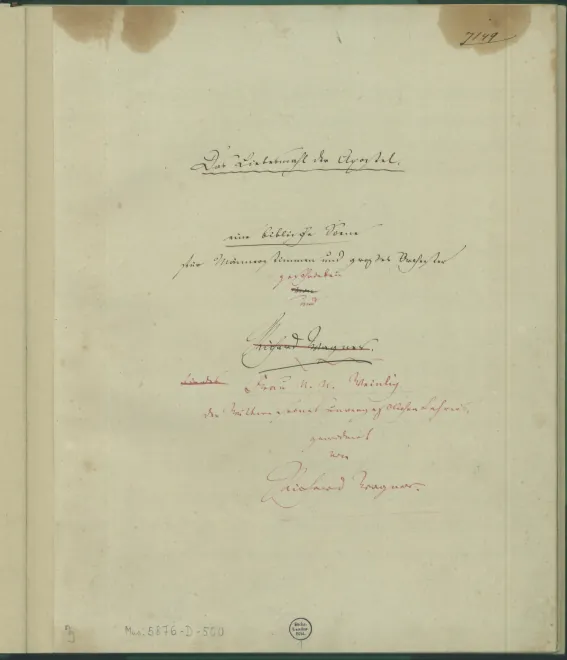 7149
Das Liebesmahl der Apostel.
eine biblische Scene
für Männerstimmen und großes Orchester
geschrieben
von
und
Richard Wagner.
Frau Weinlig
der Wittwe seines unvergeßlichen Lehrers
gewidmet
von
Richard Wagner.
Mus. 5876-D-500